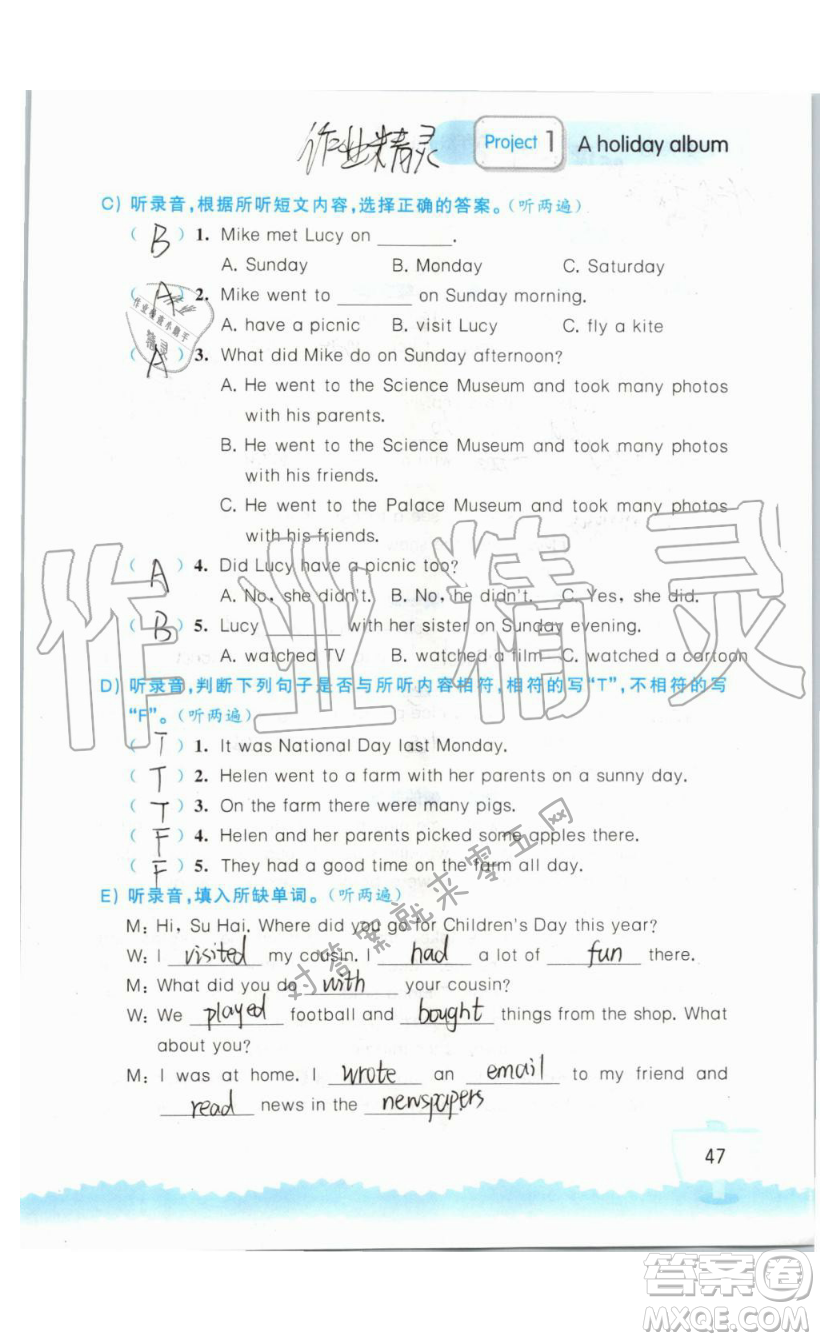 作业精灵 Project 1 A holiday album
C) 听录音,根据所听短文内容,选择正确的答案。(听两遍)
( B ) 1. Mike met Lucy on ______.
A. Sunday B. Monday C. Saturday
( A ) 2. Mike went to ______ on Sunday morning.
A. have a picnic B. visit Lucy C. fly a kite
( A ) 3. What did Mike do on Sunday afternoon?
A. He went to the Science Museum and took many photos
with his parents.
B. He went to the Science Museum and took many photos
with his friends.
C. He went to the Palace Museum and took many photos
with his friends.
( A ) 4. Did Lucy have a picnic too?
A. No, she didn't. B. No, he didn't. C. Yes, she did.
( B ) 5. Lucy ______ with her sister on Sunday evening.
A. watched TV B. watched a film C. watched a cartoon
D) 听录音,判断下列句子是否与所听内容相符,相符的写“T”,不相符的写
“F”。(听两遍)
( T ) 1. It was National Day last Monday.
( T ) 2. Helen went to a farm with her parents on a sunny day.
( T ) 3. On the farm there were many pigs.
( F ) 4. Helen and her parents picked some apples there.
( F ) 5. They had a good time on the farm all day.
E) 听录音,填入所缺单词。(听两遍)
M: Hi, Su Hai. Where did you go for Children's Day this year?
W: I visited my cousin. I had a lot of fun there.
M: What did you do with your cousin?
W: We played football and bought things from the shop. What
about you?
M: I was at home. I wrote an email to my friend and
read news in the newspapers
47
作业精灵
对答案就来零五网
答案圈
MXQE.COM